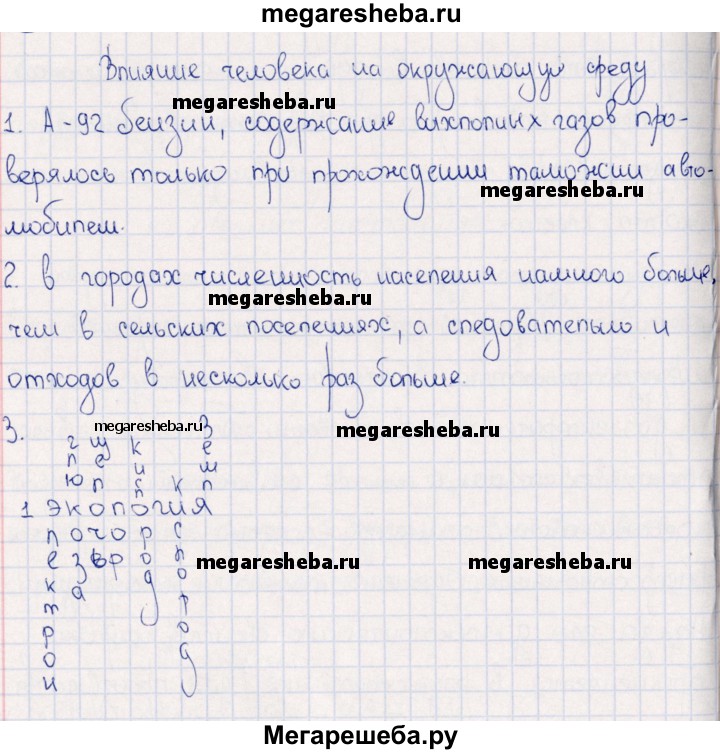 megaresheba.ru
Влияние человека на окружающую среду
megaresheba.ru
1. А-92 бензин, содержание выхлопных газов про-
верялось только при прохождении таможни авто-
megaresheba.ru
мобилем.
2. В городах численность населения намного больше,
megaresheba.ru
чем в сельских поселениях, а следовательно и
отходов в несколько раз больше.
3.
megaresheba.ru
megaresheba.ru
г щ к З
л е и е
ю л с к м
л
1 ЭКОЛОГИЯ
л о ч о р с
е з ь р о л
megaresheba.ru
megaresheba.ru
к а д о
т р
р о
о д
н
Мегарешеба.ру